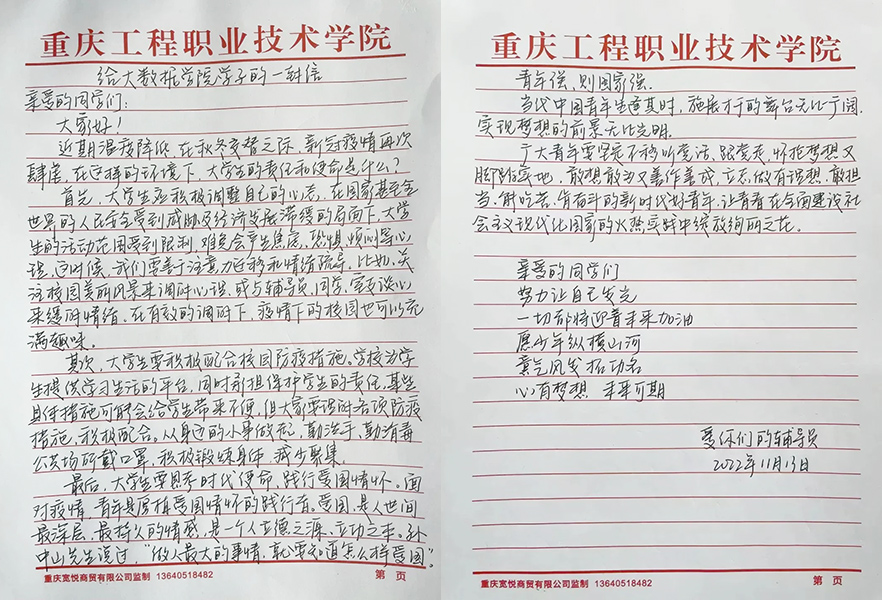 重庆工程职业技术学院
给大数据学院学子的一封信
亲爱的同学们：
大家好！
近期温度降低，在秋冬交替之际，新冠疫情再次
肆虐，在这样的环境下，大学生的责任和使命是什么？
首先，大学生应积极调整自己的心态，在国家甚至全
世界的人民安全受到威胁及经济发展滞缓的局面下，大学
生的活动范围受到限制，难免会产生焦虑，恐惧，烦闷等心
理，这时候，我们要善于注意力迁移和情绪疏导，比如，关
注校园美丽风景来调解心理，或与辅导员，同学，室友谈心
来缓解情绪，在有效的调解下，疫情下的校园也可以充
满趣味。
其次，大学生要积极配合校园防疫措施，学校为学
生提供学习生活的平台，同时承担保护学生的责任，某些
具体措施可能会给学生带来不便，但大家要理解各项防疫
措施，积极配合，从身边的小事做起，勤洗手，勤消毒
公共场所戴口罩，积极锻炼身体，减少聚集。
最后，大学生要思考时代使命，践行爱国情怀。面
对疫情，青年是厚植爱国情怀的践行者。爱国，是人世间
最深层，最持久的情感，是一个人立德之源、立功之本。孙
中山先生说过，“做人最大的事情，就要知道怎么样爱国”。
重庆宽悦商贸有限公司监制 13640518482
第 页
重庆工程职业技术学院
青年强，则国家强。
当代中国青年生逢其时，施展才干的舞台无比广阔，
实现梦想的前景无比光明。
广大青年要坚定不移听党话、跟党走，怀抱梦想又
脚踏实地，敢想敢为又善作善成，立志做有理想、敢担
当、能吃苦、肯奋斗的新时代好青年，让青春在全面建设社
会主义现代化国家的火热实践中绽放绚丽之花。
亲爱的同学们
努力让自己发光
一切都将迎着未来加油
愿少年纵横山河
意气风发拓功名
心有梦想 未来可期
爱你们的辅导员
2022年11月13日
重庆宽悦商贸有限公司监制 13640518482
第 页